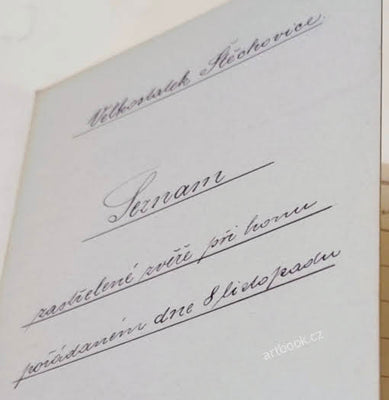 Velkostatek Štěchovice
Seznam
zastřelené zvěře při honu
pořádaném dne 8 listopadu
artbook.cz